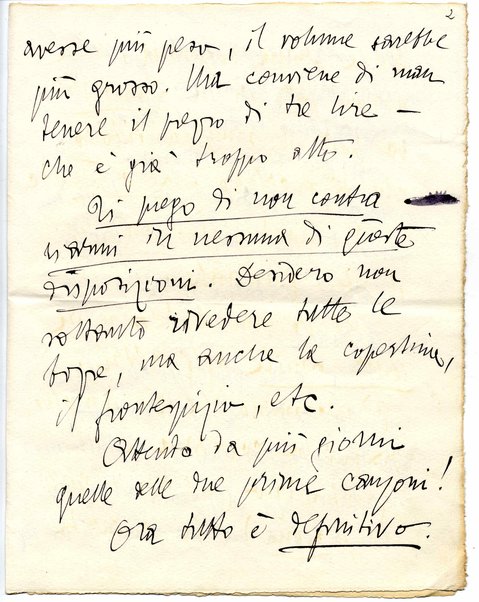 2
avesse più peso, il volume sarebbe
più grosso. Ma conviene di man
tenere il prezzo di tre lire –
che è già troppo alto.
Ti prego di non contra
riarmi in nessuna di queste
disposizioni. Desidero non
soltanto rivedere tutte le
bozze, ma anche la copertina,
il frontespizio, etc.
Attendo da più giorni
quelle delle due prime canzoni!
Ora tutto è definitivo.